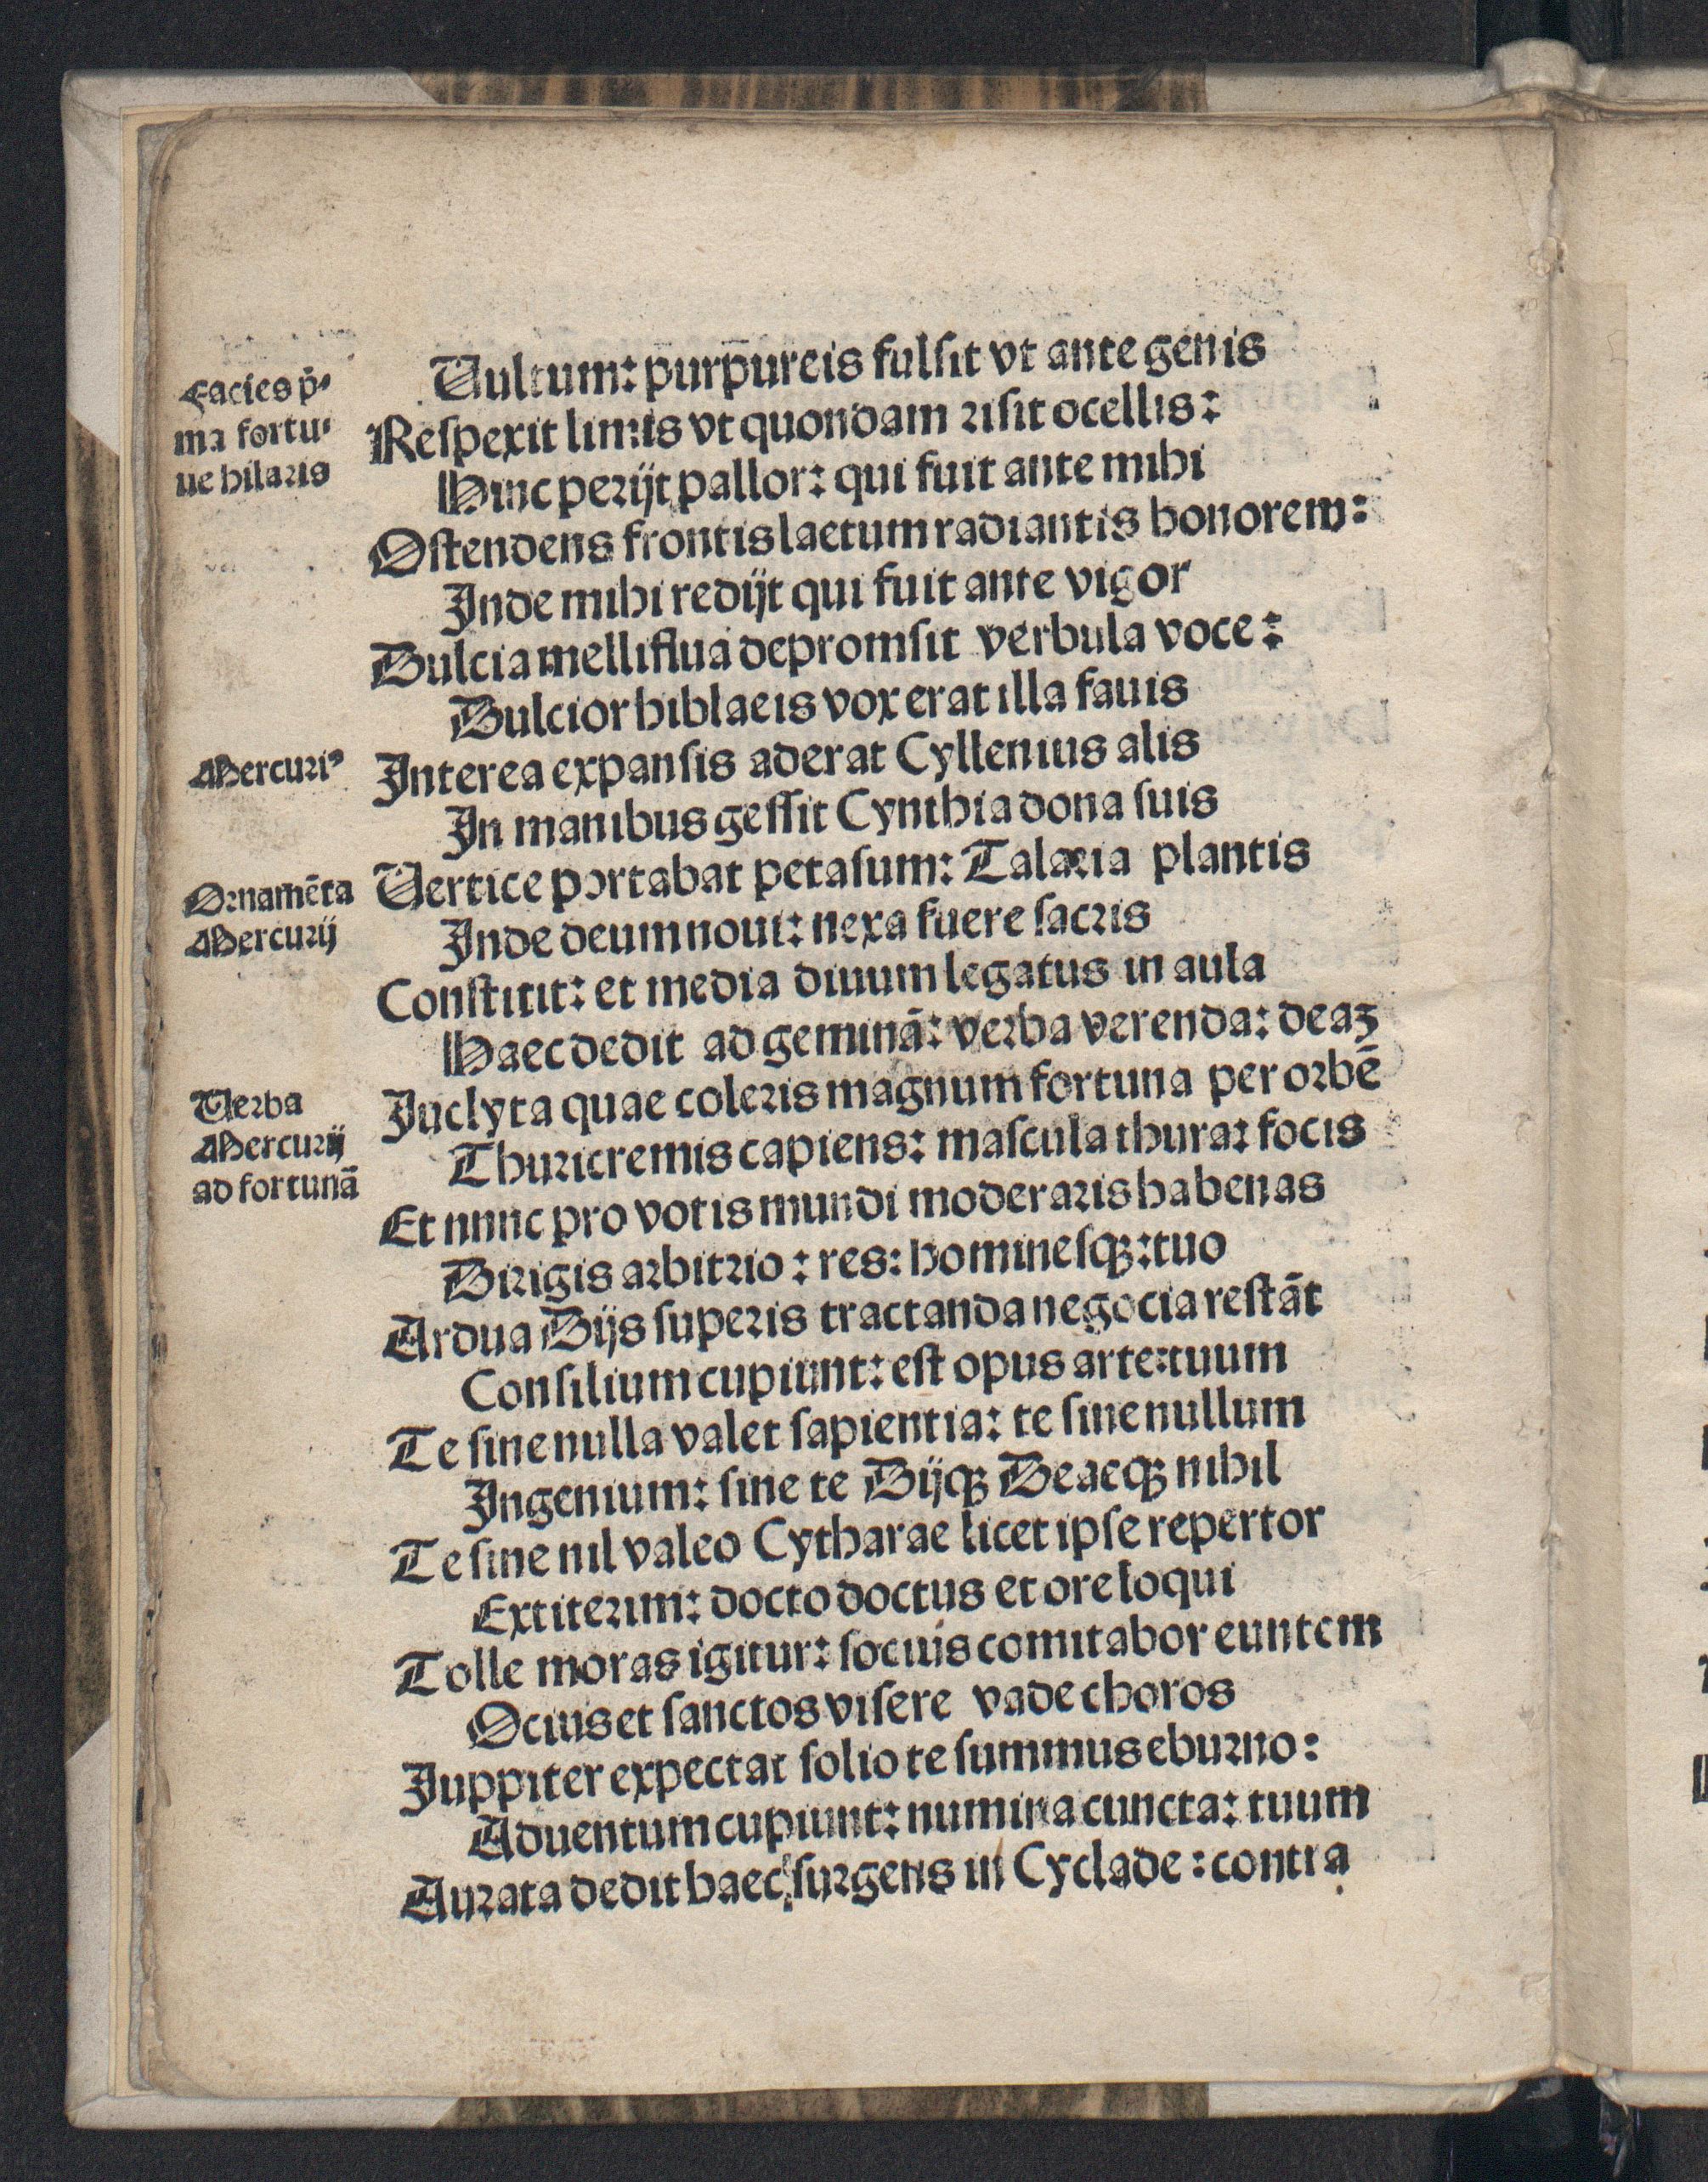 Vultum: purpureis fulſit vt ante genis
Facies p̄⸗
ma fortu⸗
ne hilaris
Reſpexit limis vt quondam riſit ocellis:
Hinc perijt pallor: qui fuit ante mihi
Oſtendens frontis laetum radiantis honorem:
Inde mihi redijt qui fuit ante vigor
Dulcia melliflua depromſit verbula voce:
Dulcior hiblaeis vox erat illa fauis
Mercuriꝰ
Interea expanſis aderat Cyllenius alis
In manibus geſſit Cynthia dona ſuis
Ornamēta
Mercurij
Vertice portabat petaſum: Talaria plantis
Inde deum noui: nexa fuere ſacris
Conſtitit: et media diuum legatus in aula
Haec dedit ad geminā: verba verenda: deaꝫ
Verba
Mercurij
ad fortunā
Inclyta quae coleris magnum fortuna per orbē
Thuricremis capiens: maſcula thura: focis
Et nunc pro votis mundi moderaris habenas
Dirigis arbitrio: res: homineſqꝫ: tuo
Ardua Dijs ſuperis tractanda negocia reſtāt
Conſilium cupiunt: eſt opus arte: tuum
Te ſine nulla valet ſapientia: te ſine nullum
Ingenium: ſine te Dijqꝫ Deaeqꝫ nihil
Te ſine nil valeo Cytharae licet ipſe repertor
Extiterim: docto doctus et ore loqui
Tolle moras igitur: ſociuis comitabor euntem
Ocius et ſanctos viſere vade choros
Iuppiter expectat ſolio te ſummus eburno:
Aduentum cupiunt: numina cuncta: tuum
Aurata dedit haec ſurgens in Cyclade: contra